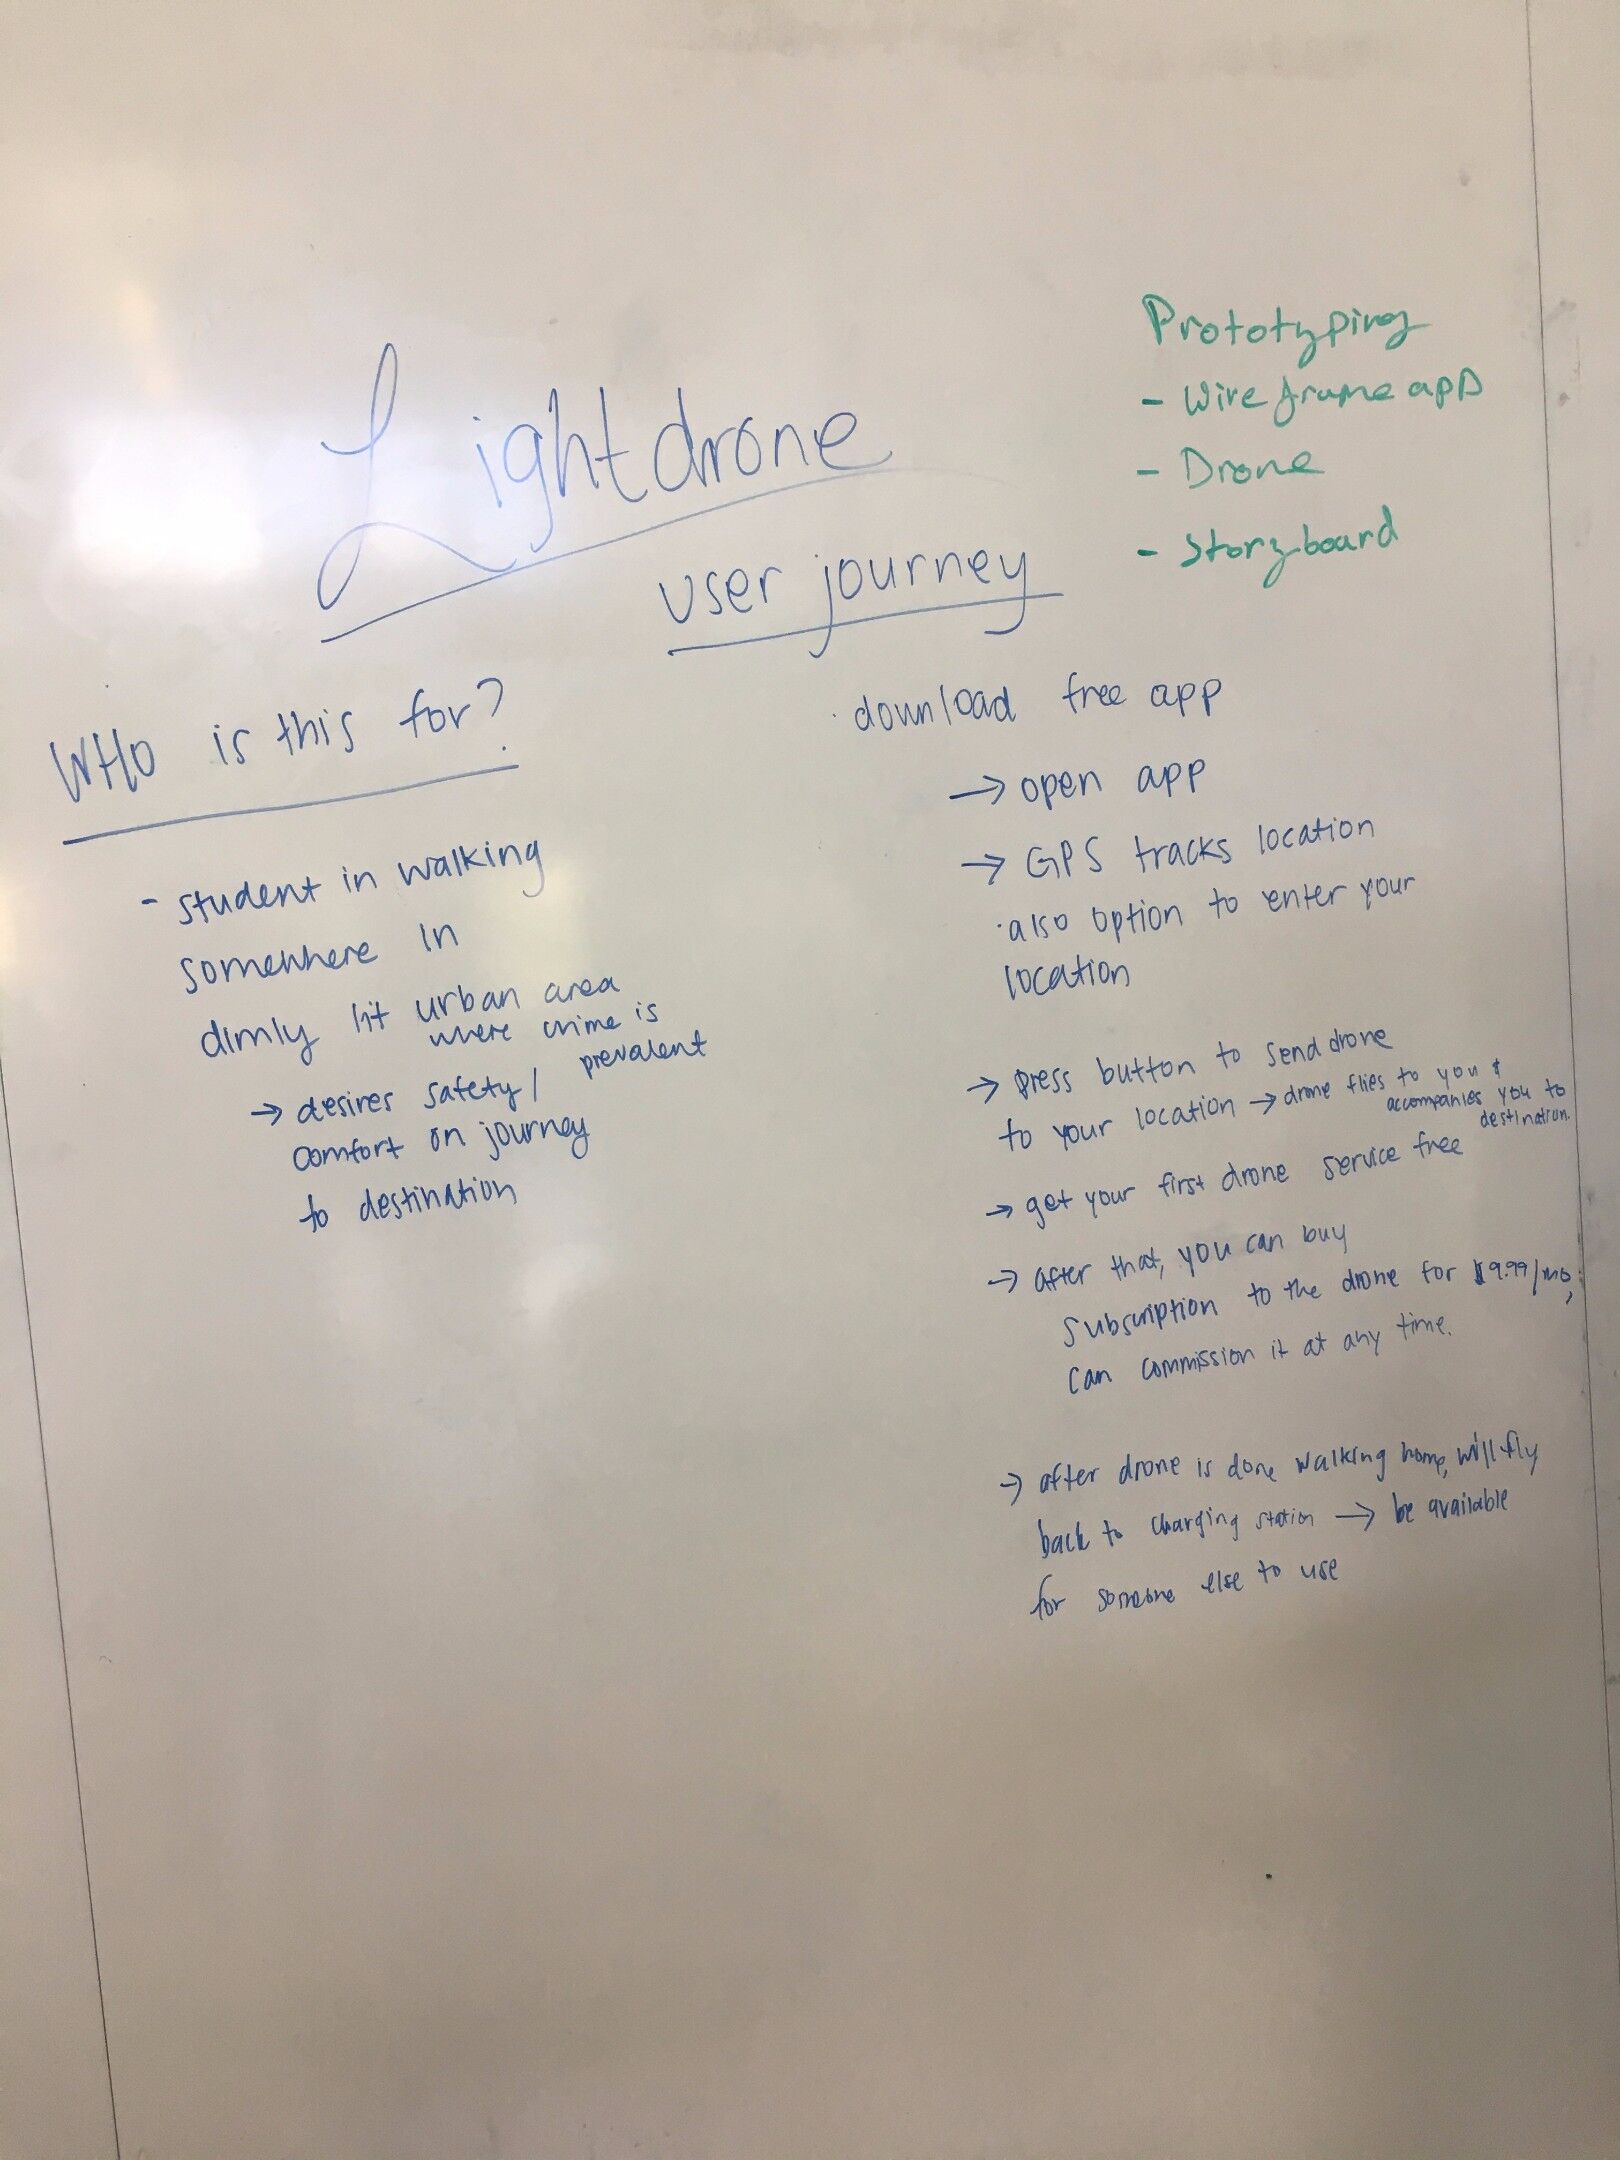 Lightdrone
user journey
Prototyping
- Wireframe app
- Drone
- Storyboard
WHO is this for?
- student in walking
somewhere in
dimly lit urban area
where crime is
prevalent
→ desires safety/
comfort on journey
to destination
· download free app
→ open app
→ GPS tracks location
· also option to enter your
location
→ press button to send drone
to your location → drone flies to you &
accompanies you to
destination.
→ get your first drone service free
→ after that, you can buy
subscription to the drone for $9.99/mo,
can commission it at any time.
→ after drone is done walking home, will fly
back to charging station → be available
for someone else to use